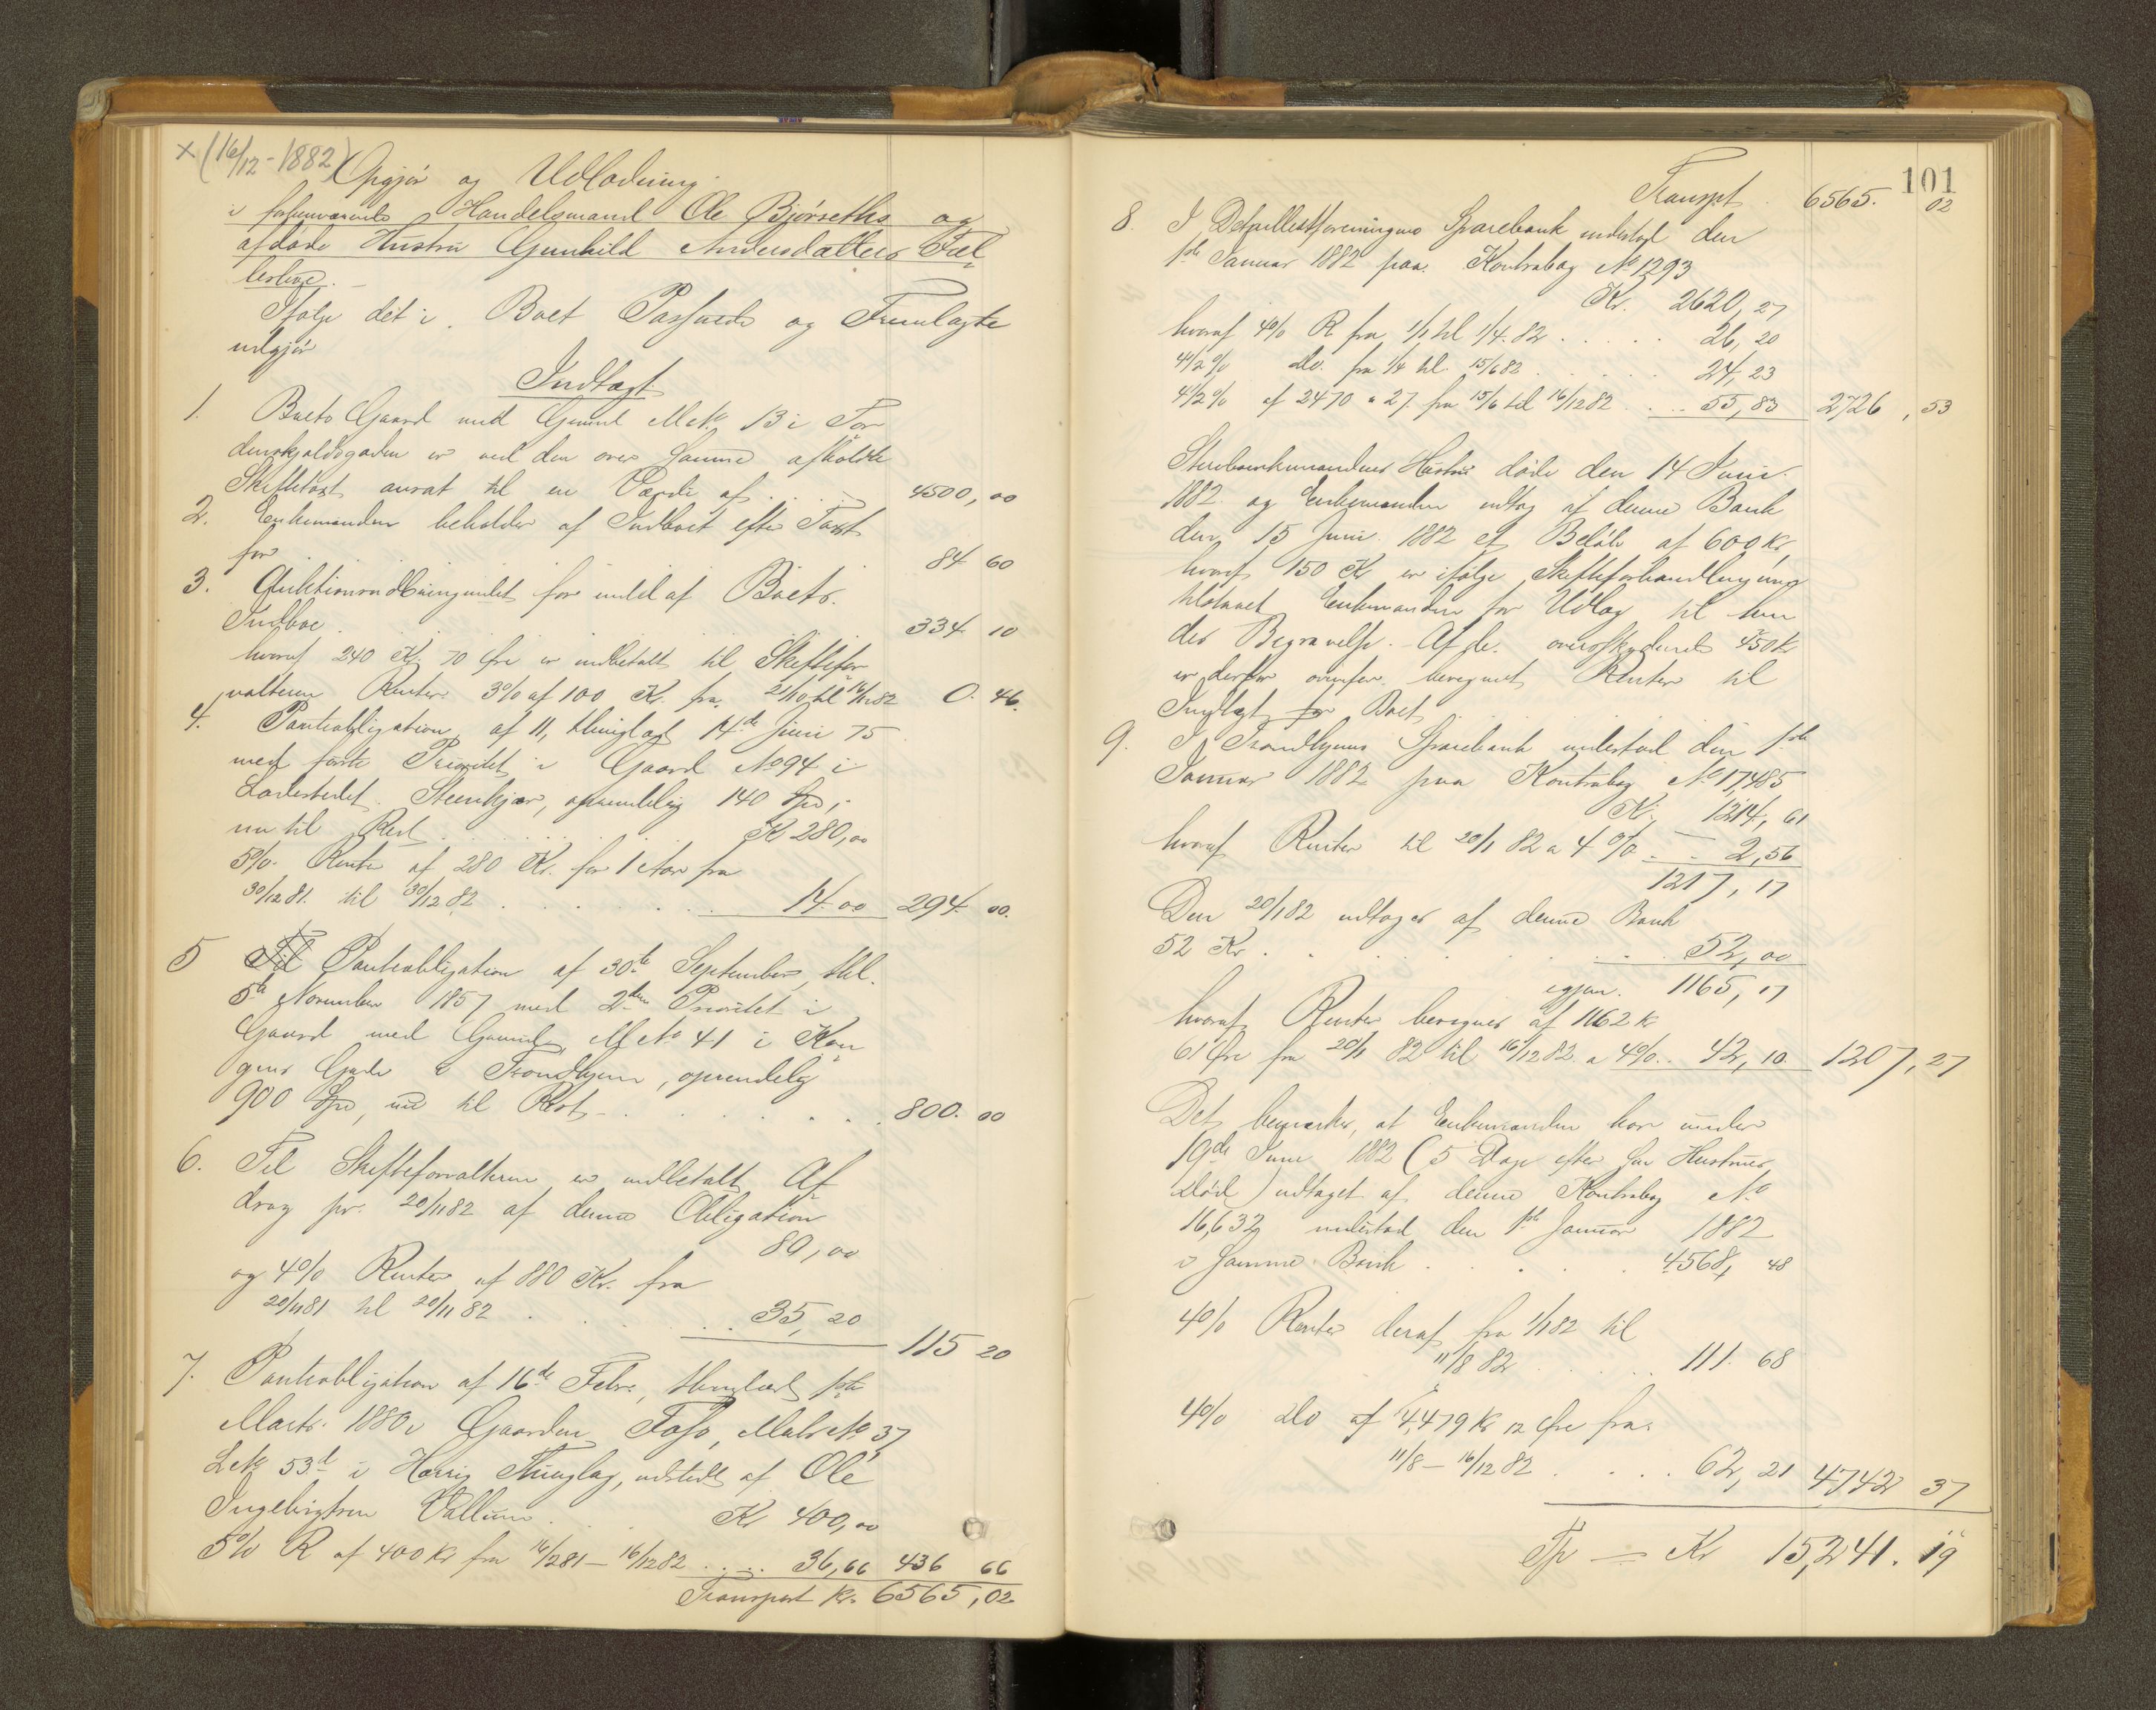 x (16/12 - 1882)
Opgjör og Udlodning
i forhenværende Handelsmand Ole Bjørseths og
afdøde Hustru Gunhild Andersdatters Fæl
lesbo.
Ifølge det i Boet Passerede og Fremlagte
udgjør
Indtægt
1. Boets Gaard med Grund Mtk. 13 i Tor
denskjoldsgaden er ved den over samme afholdte
Skiftetaxt ansat til en Værdi af . . . . 4500,00
2. Enkemanden beholder af Indboet efter Taxt
for . . . 84 60
3. Auktionsudbringendet for endel af Boets
Indboe . . . 334 10
hvoraf 240 Kr. 70 Øre er indbetalt til Skiftefor
valteren Renter 3% af 100 Kr. fra 21/10 til 16/12 82 0. 46.
4. Panteobligation af 11, thinglæst 14de Juni 75
med første Prioritet i Gaard No 94 i
Ladestedet Steenkjær, oprindelig 140 Spd,
nu til Rest . . . Kr 280,00
5% Rente af 280 Kr. for 1 Aar fra
30/12 81. til 30/12 82 . . . 14.00 294. 00.
5 Til Panteobligation af 30te September, thl.
5te November 1857 med 2den Prioritet i
Gaard med Grund, M No 41 i Kon
gens Gade i Trondhjem, oprindelig
900 Spd, nu til Rest . . . 800. 00
6. Til Skifteforvalteren er indbetalt Af
drag pr. 20/11 82 af denne Obligation
80,00
og 4% Renter af 880 Kr. fra
20/11 81 til 20/11 82 . . . 35,20
115 20
7. Panteobligation af 16de Febr., thinglæst 1ste
Marts 1880 i Gaarden Foso, Matr No 37
L No 53d i Thinglag, udstedt af Ole
Ingebrigtsen Vallum . . . Kr 400,00
5% R af 400 Kr fra 16/2 81 – 16/12 82 . . . 36,66 436 66
Transport Kr. 6565,02
101
Transpt 6565. 02
8. I Detaillistforeningens Sparebank indestod den
1ste Januar 1882 paa Kontrabog No 1293
Kr. 2620,27
hvoraf 4% R fra 1/1 til 1/4. 82 . . . . . 26,20
4 1/2 % do. fra 1/4 til 15/6 82 . . . . . 24,23
4 1/2 % af 2470 " 27. fra 15/6 til 16/12 82 . . . . 55,83 2726,53
Stervboenkemandens Hustru døde den 14 Juni
1882 og Enkemanden udtog af denne Bank
den 15 Juni 1882 et Beløb af 600 Kr,
hvoraf 150 Kr er ifølge Skifteforhandlingerne
tilstaaet Enkemanden for Udlæg til hen
des Begravelse. Af de overskydende 450 Kr
er derfor ovenfor beregnet Renter til
Indtægt for Boet
9. I Trondhjems Sparebank indestod den 1ste
Januar 1882 paa Kontrabog No 17,485
Kr. 1214,61
hvoraf Renter til 20/1 82 a 4% . . 2,56
1217,17
Den 20/1 82 udtoges af denne Bank
52 Kr . . . 52,00
igjen 1165,17
hvoraf Renter beregnes af 1162 Kr
61 Øre fra 20/1 82 til 16/12 82 a 4% . . 42,10. 1207,27
Det bemærkes, at Enkemanden har under
19de Juni 1882 (5 Dage efter sin Hustrues
Død) udtaget af denne Kontrabog No
16,632 indestod den 1ste Januar 1882
i samme Bank . . . . 4568, 48
4% Renter deraf fra 1/1 82 til
11/8 82 . . . . 111. 68
4% do af 4,479 Kr 12 Øre fra
11/8 – 16/12 82 . . . . 62,21 4742 37
Tp = Kr 15,241. 19